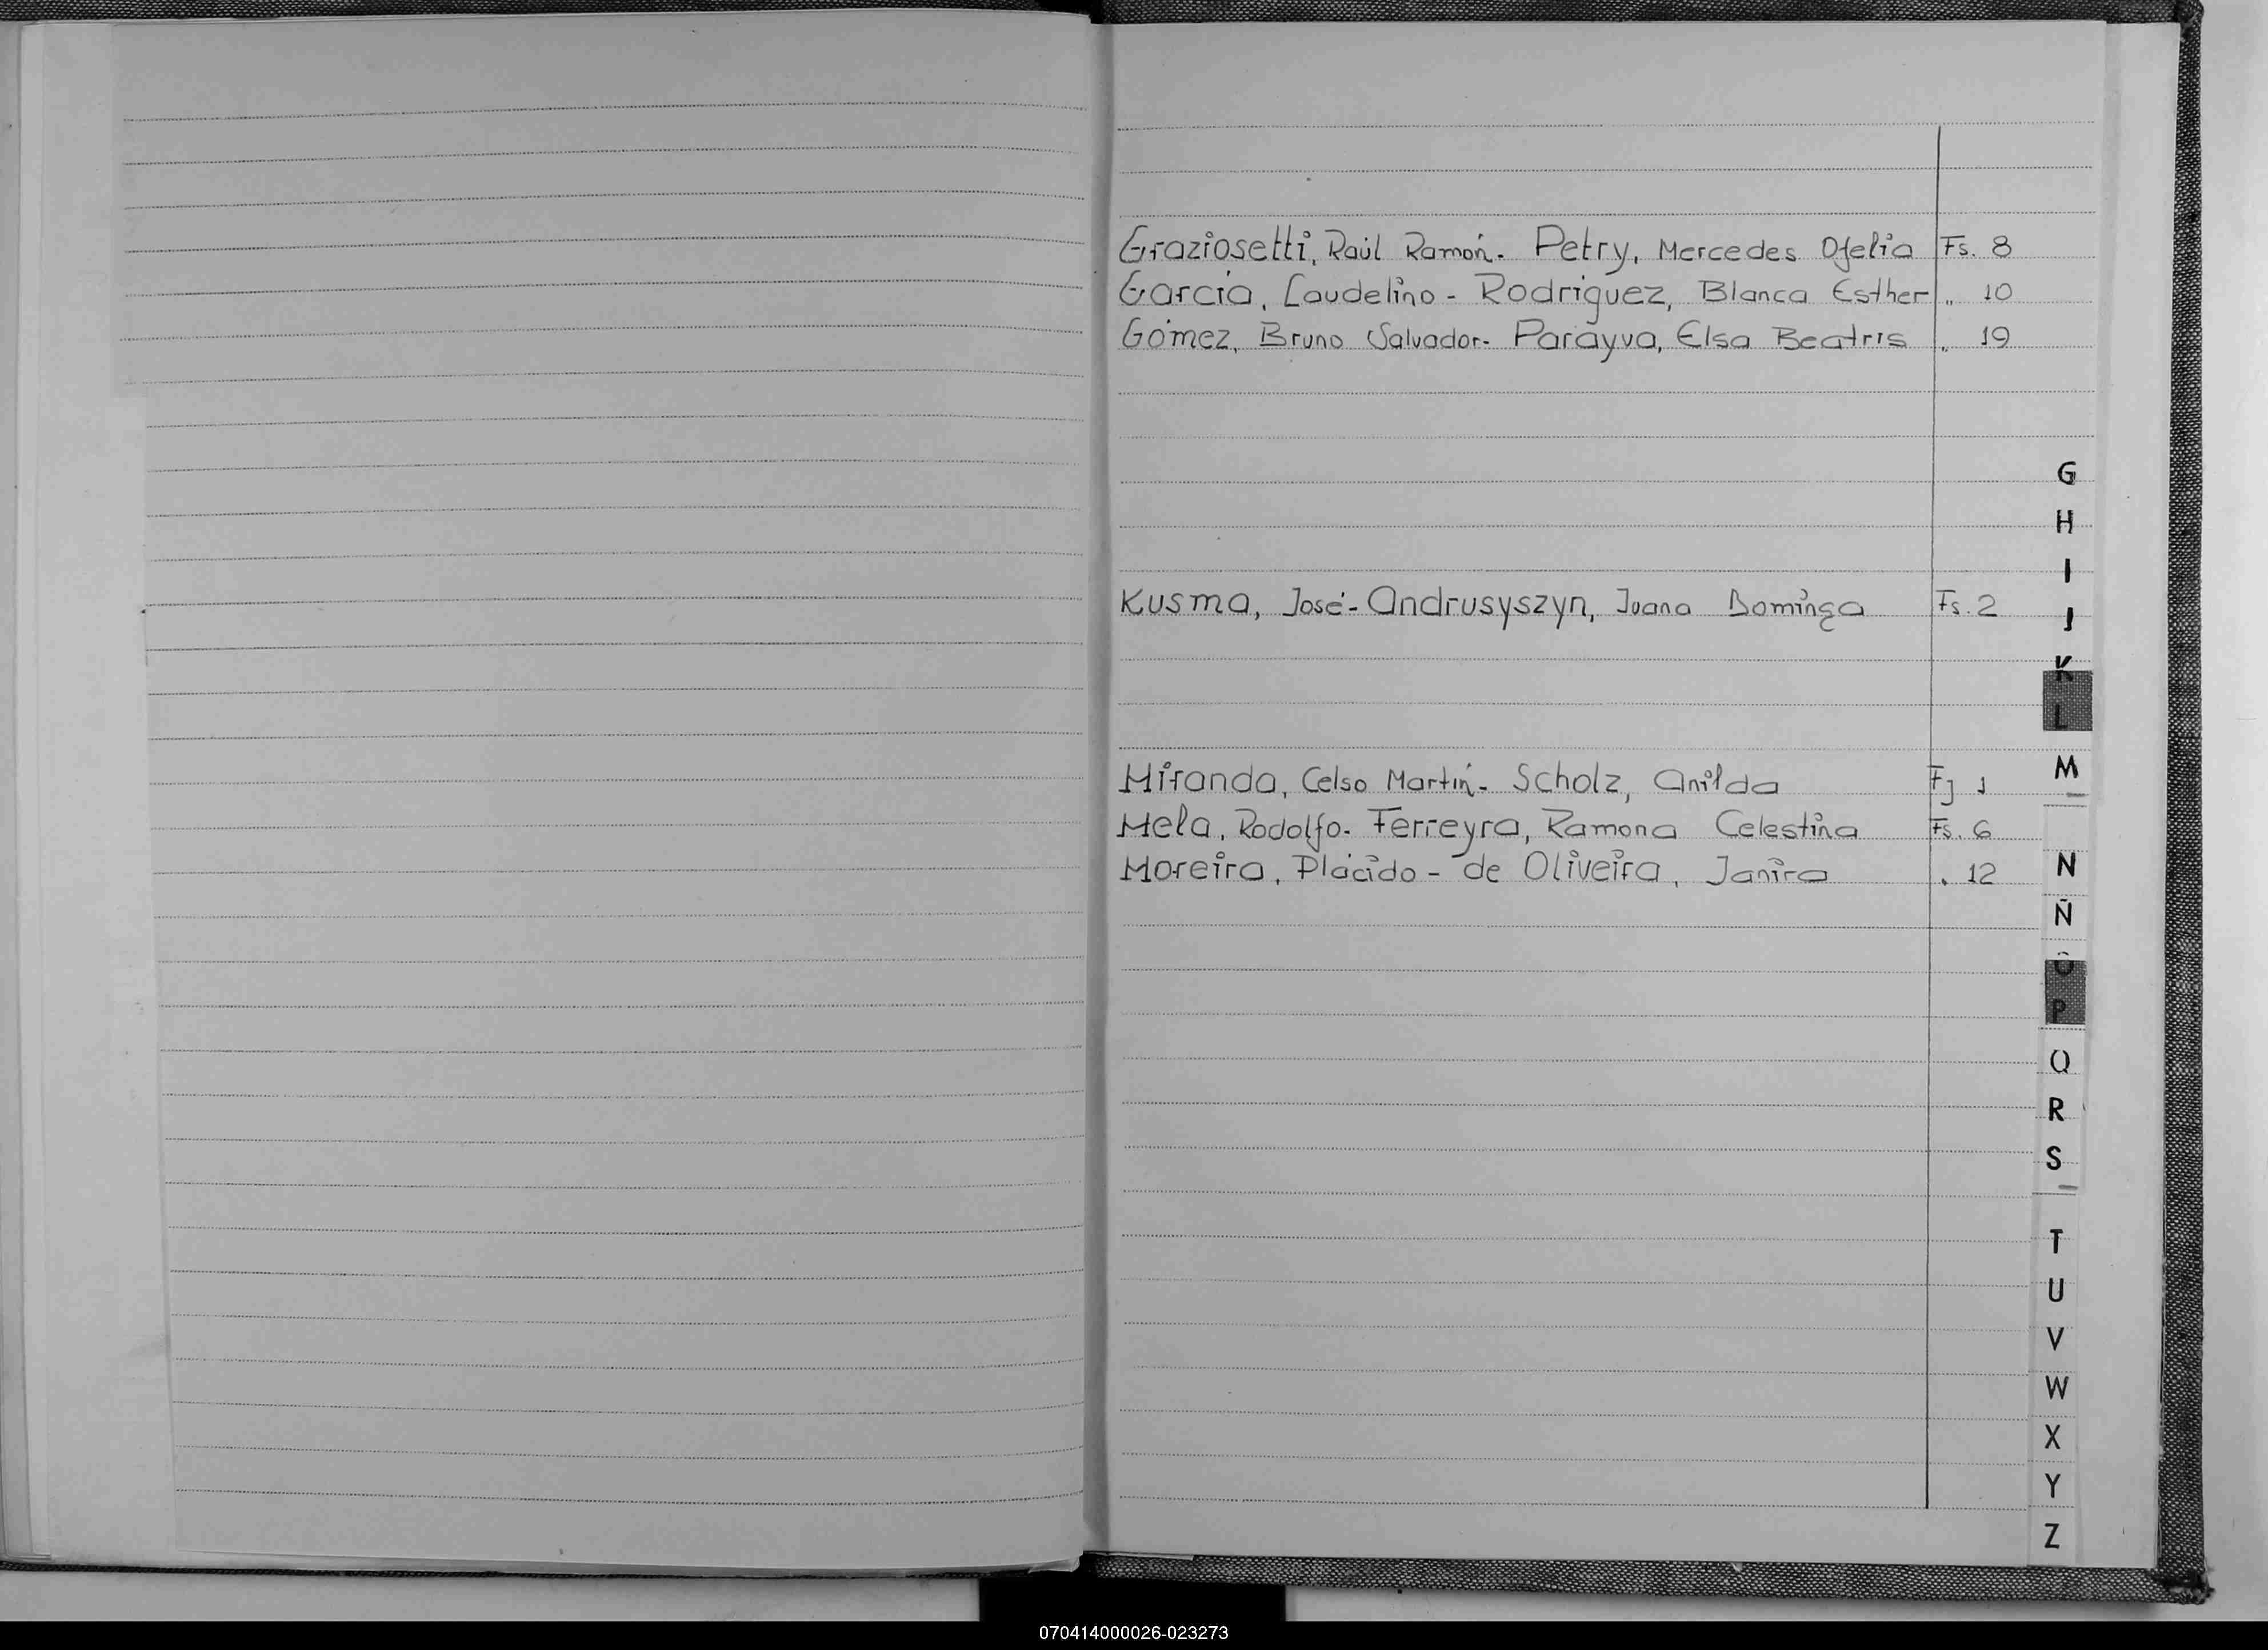 Graziosetti, Raúl Ramón. Petry, Mercedes Ofelia Fs. 8
García, Laudelino - Rodriguez, Blanca Esther " 10
Gómez, Bruno Salvador. Parayva, Elsa Beatris " 19
G
H
I
Kusma, José - Andrusyszyn, Juana Dominga Fs. 2
J
K
L
M
Miranda, Celso Martín. Scholz, Anilda Fj 1
Mela, Rodolfo. Ferreyra, Ramona Celestina Fs. 6
Moreira, Plácido - de Oliveira, Janira " 12
N
Ñ
O
P
Q
R
S
T
U
V
W
X
Y
Z
070414000026-023273